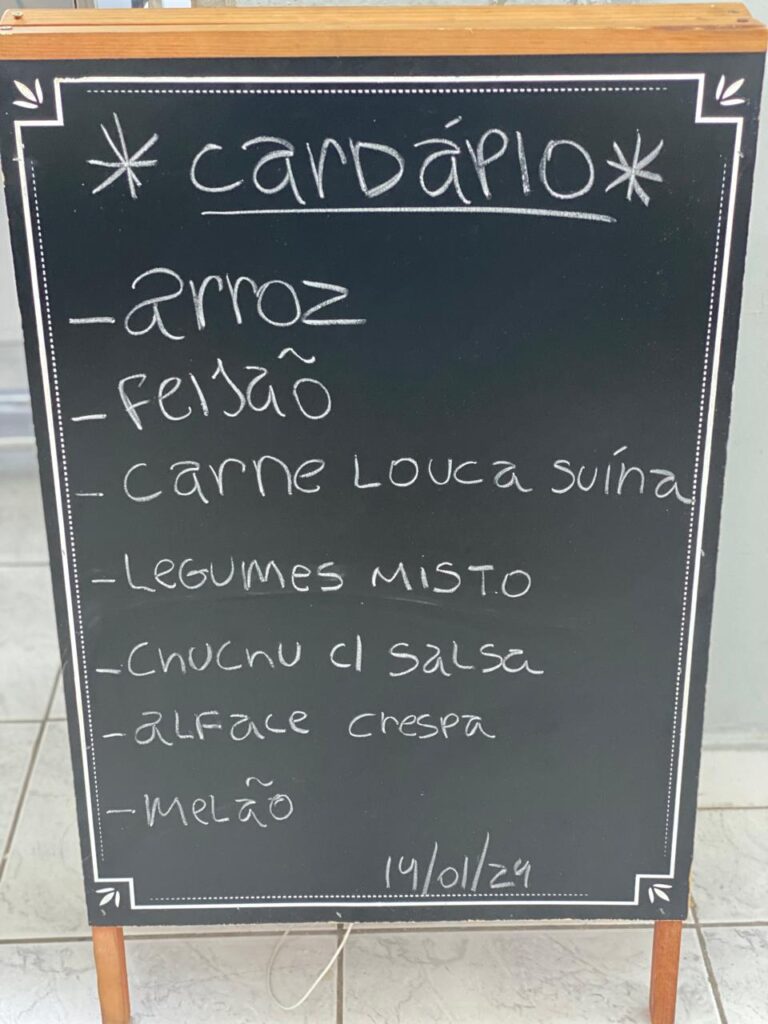 * CARDÁPIO *
- Arroz
- Feijão
- Carne Louca Suína
- Legumes Misto
- Chuchu c/ Salsa
- Alface Crespa
- Melão
19/01/29